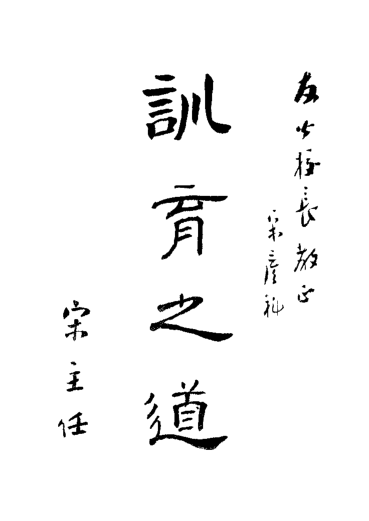 校長教正
宋彥
訓育之道
宋主任